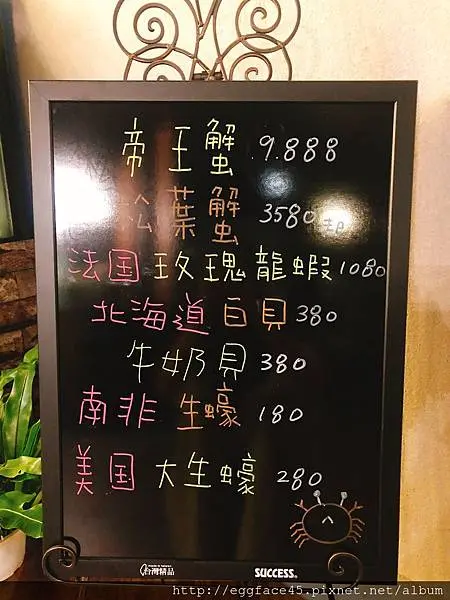 帝王蟹 9.888
松葉蟹 3580起
法国玫瑰龍蝦 1080
北海道白貝 380
牛奶貝 380
南非生蠔 180
美国大生蠔 280
台灣精品 SUCCESS
http://eggface45.pixnet.net/album